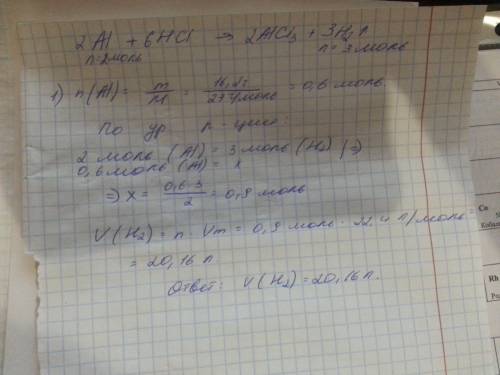 2Al + 6HCl → 2AlCl₃ + 3H₂↑
n=2моль n=3моль
1) n(Al) = m/M = 16,2г/27г/моль = 0,6 моль
По ур. р-ции:
2 моль (Al) = 3 моль (H₂) | ⇒
0,6 моль (Al) = x
⇒ x = 0,6·3/2 = 0,9 моль
V(H₂) = n · Vm = 0,9 моль · 22,4 л/моль =
= 20,16 л
Ответ: V(H₂) = 20,16 л.
Co
Rh